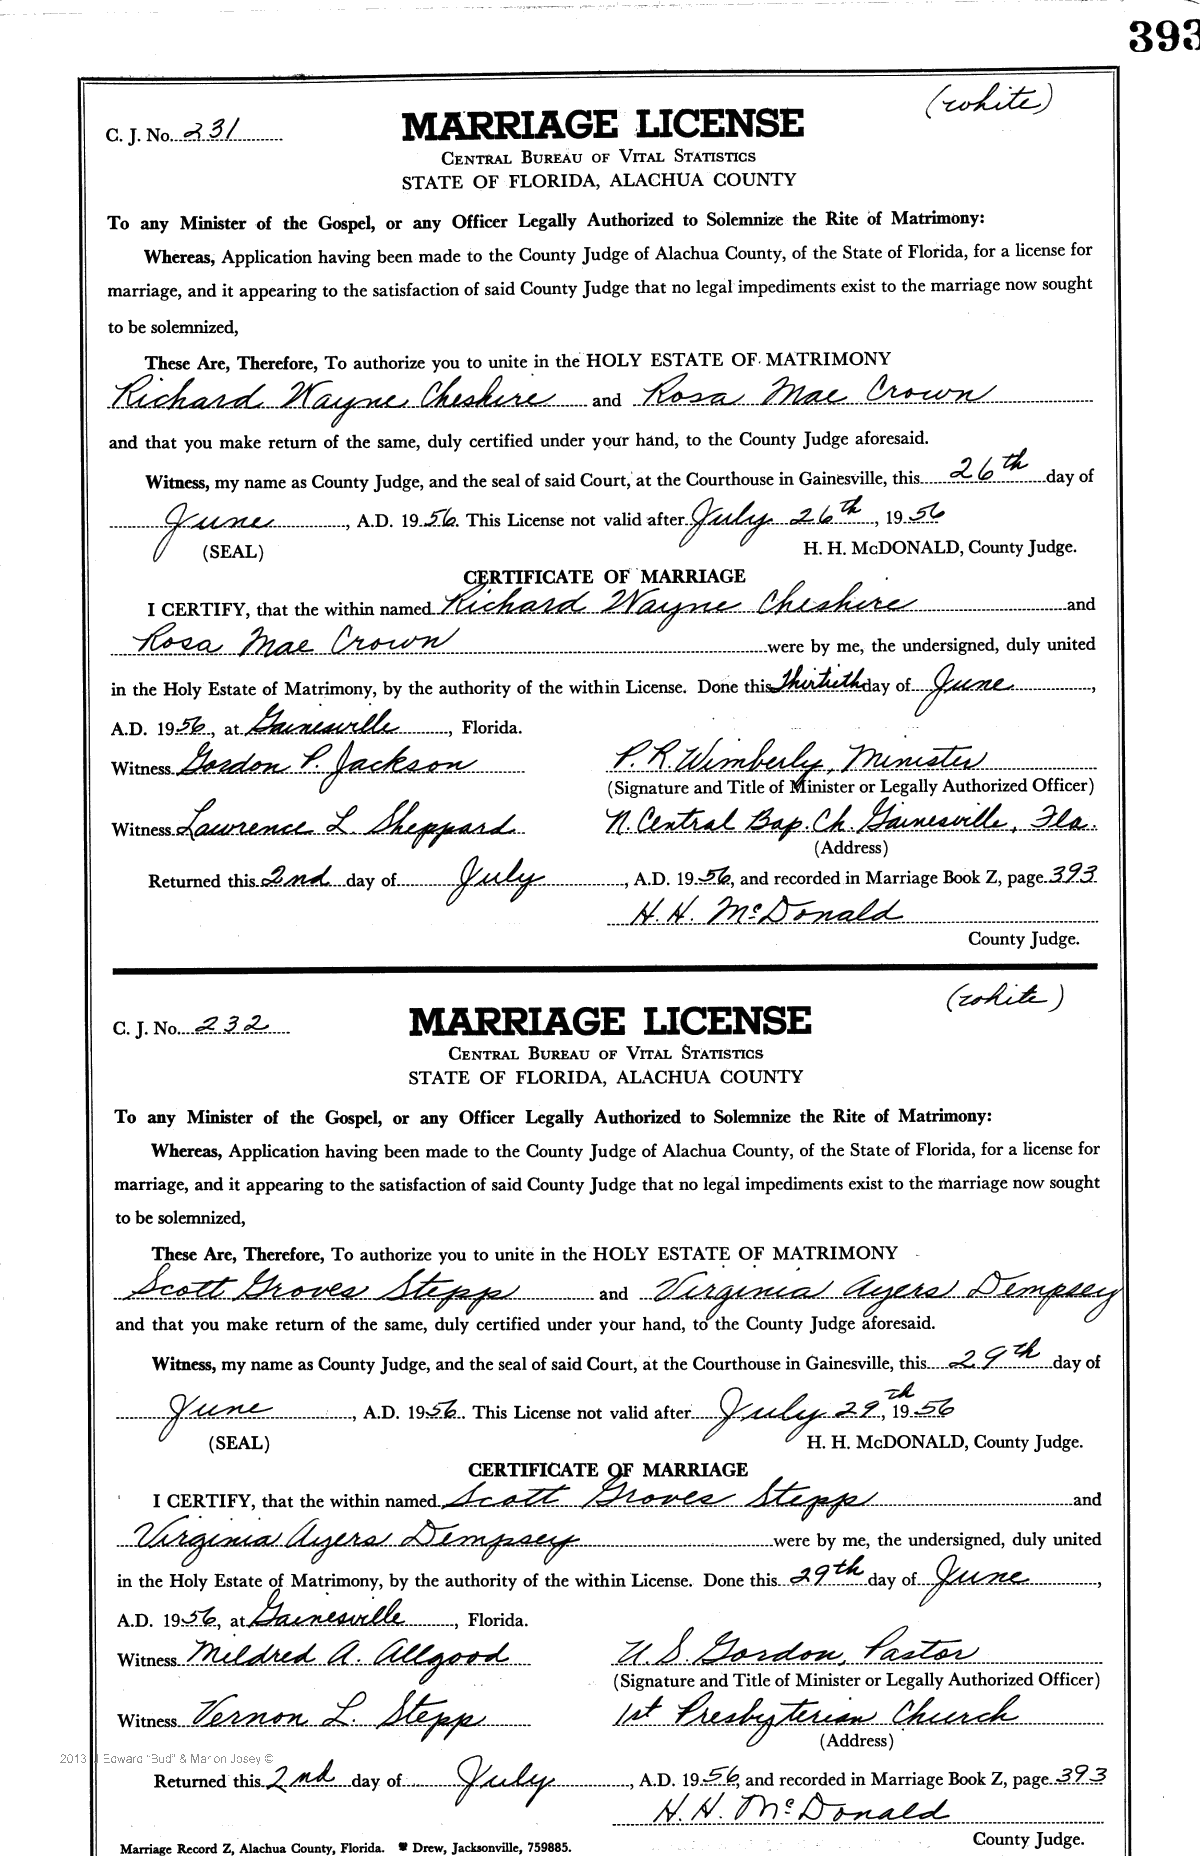 393
(white)
C. J. No. 231
MARRIAGE LICENSE
CENTRAL BUREAU OF VITAL STATISTICS
STATE OF FLORIDA, ALACHUA COUNTY
To any Minister of the Gospel, or any Officer Legally Authorized to Solemnize the Rite of Matrimony:
Whereas, Application having been made to the County Judge of Alachua County, of the State of Florida, for a license for
marriage, and it appearing to the satisfaction of said County Judge that no legal impediments exist to the marriage now sought
to be solemnized,
These Are, Therefore, To authorize you to unite in the HOLY ESTATE OF MATRIMONY
Richard Wayne Cheshire and Rosa Mae Crown
and that you make return of the same, duly certified under your hand, to the County Judge aforesaid.
Witness, my name as County Judge, and the seal of said Court, at the Courthouse in Gainesville, this 26th day of
June, A.D. 1956. This License not valid after July 26th, 1956
(SEAL) H. H. McDONALD, County Judge.
CERTIFICATE OF MARRIAGE
I CERTIFY, that the within named Richard Wayne Cheshire and
Rosa Mae Crown were by me, the undersigned, duly united
in the Holy Estate of Matrimony, by the authority of the within License. Done this Thirtieth day of June,
A.D. 1956, at Gainesville, Florida.
Witness Gordon P. Jackson P. R. Wimberly, Minister
(Signature and Title of Minister or Legally Authorized Officer)
Witness Lawrence L Sheppard N. Central Bap. Ch. Gainesville, Fla.
(Address)
Returned this 2nd day of July, A.D. 1956, and recorded in Marriage Book Z, page 393
H. H. McDonald
County Judge.
(white)
C. J. No. 232
MARRIAGE LICENSE
CENTRAL BUREAU OF VITAL STATISTICS
STATE OF FLORIDA, ALACHUA COUNTY
To any Minister of the Gospel, or any Officer Legally Authorized to Solemnize the Rite of Matrimony:
Whereas, Application having been made to the County Judge of Alachua County, of the State of Florida, for a license for
marriage, and it appearing to the satisfaction of said County Judge that no legal impediments exist to the marriage now sought
to be solemnized,
These Are, Therefore, To authorize you to unite in the HOLY ESTATE OF MATRIMONY
Scott Groves Stepp and Virginia Ayers Dempsey
and that you make return of the same, duly certified under your hand, to the County Judge aforesaid.
Witness, my name as County Judge, and the seal of said Court, at the Courthouse in Gainesville, this 29th day of
June, A.D. 1956. This License not valid after July 29th, 1956
(SEAL) H. H. McDONALD, County Judge.
CERTIFICATE OF MARRIAGE
I CERTIFY, that the within named Scott Groves Stepp and
Virginia Ayers Dempsey were by me, the undersigned, duly united
in the Holy Estate of Matrimony, by the authority of the within License. Done this 29th day of June,
A.D. 1956, at Gainesville, Florida.
Witness Mildred A. Allgood U. S. Gordon, Pastor
(Signature and Title of Minister or Legally Authorized Officer)
Witness Vernon L. Stepp 1st Presbyterian Church
(Address)
2013 J Edward "Bud" & Marion Josey ©
Returned this 2nd day of July, A.D. 1956, and recorded in Marriage Book Z, page 393
H. H. McDonald
County Judge.
Marriage Record Z, Alachua County, Florida. Drew, Jacksonville, 759885.